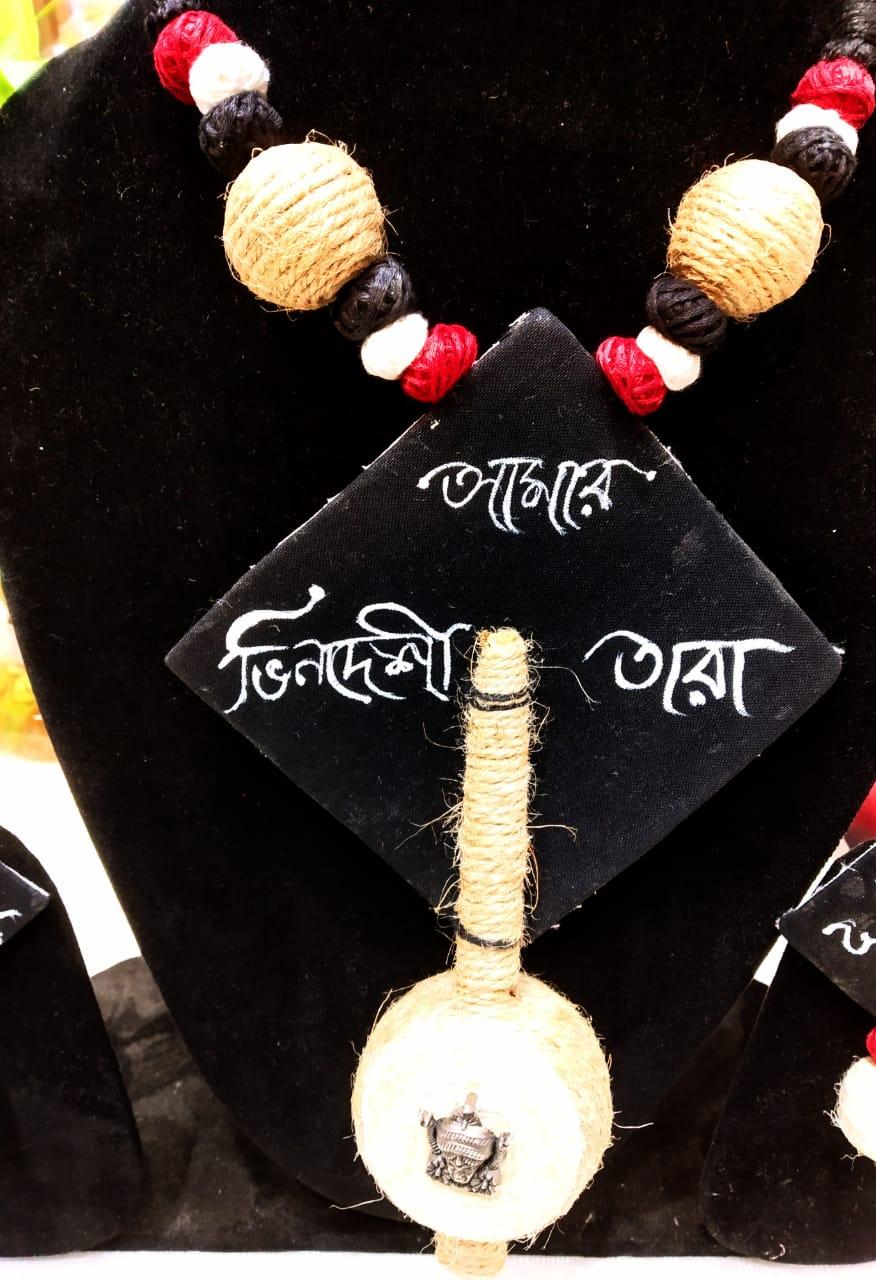 আমার
ভিনদেশী তারা